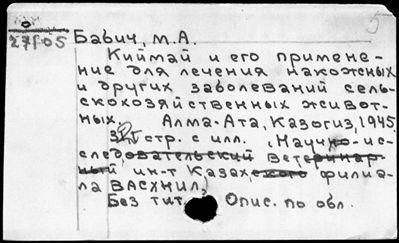 5
27105 Бабич, М.А.
Киймай и его примене-
ние для лечения накожных
и других заболеваний сель-
скохозяйственных живот-
ных. Алма-Ата, Казогиз, 1945.
стр. с илл. (Научно-ис-
следовательский ветеринар-
ный ин-т Казахского филиа-
ла ВАСХНИЛ)
Без тит. Опис. по обл.